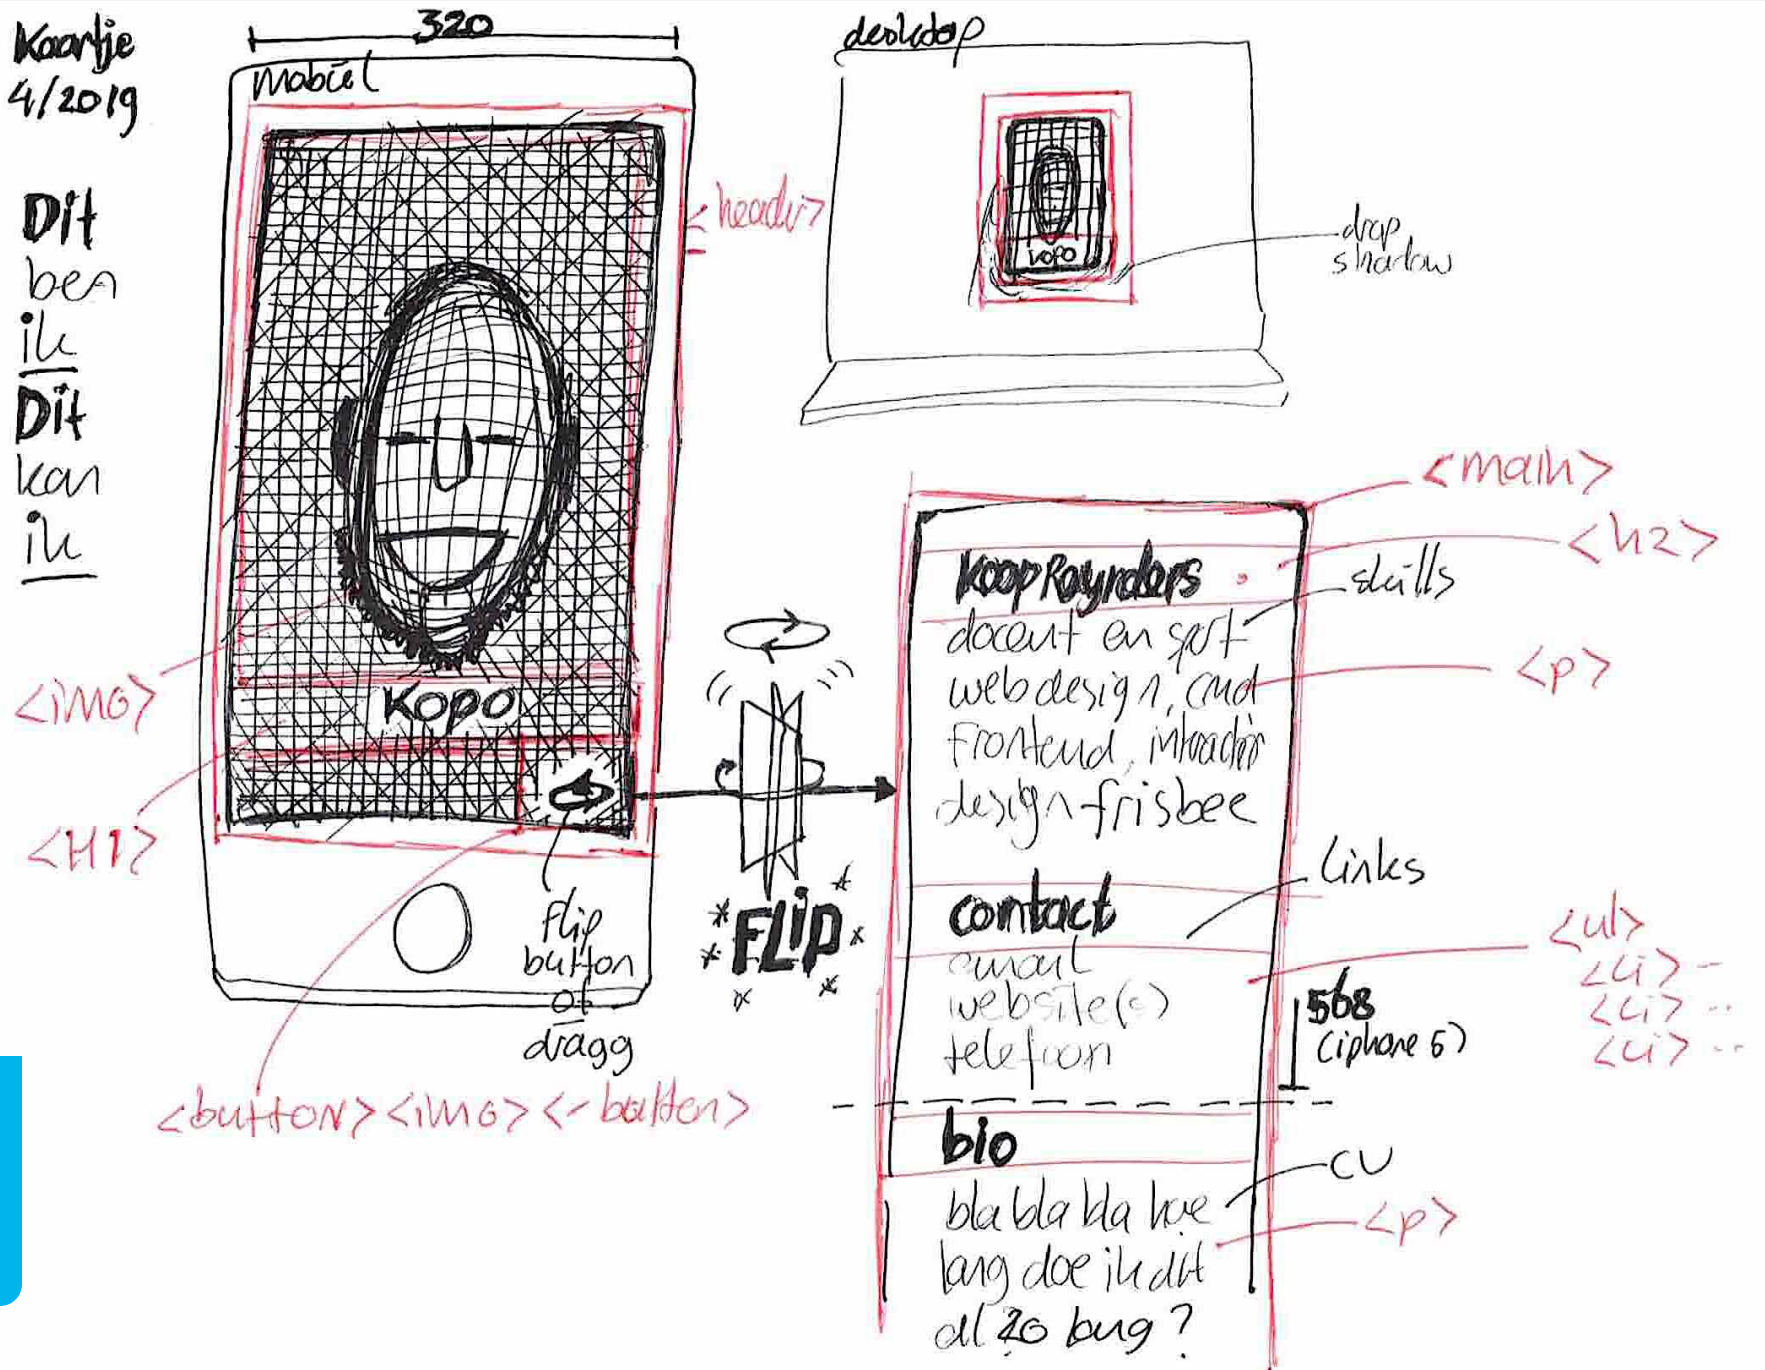 Kaartje
4/2019
Dit
ben
ik
Dit
kan
ik
320
mobiel
<header>
Kopo
<img>
<H1>
flip
button
of
dragg
<button><img><-button>
FLIP
desktop
kopo
drop
shadow
<main>
<h2>
Koop Reynders
skills
docent en spt
webdesign, cmd
<p>
Frontend, interactie
design frisbee
Links
contact
email
website(s)
telefoon
<ul>
<li> -
<li> --
<li> --
568
(iphone 5)
bio
CV
bla bla bla hoe
<p>
lang doe ik dit
al 20 lang?